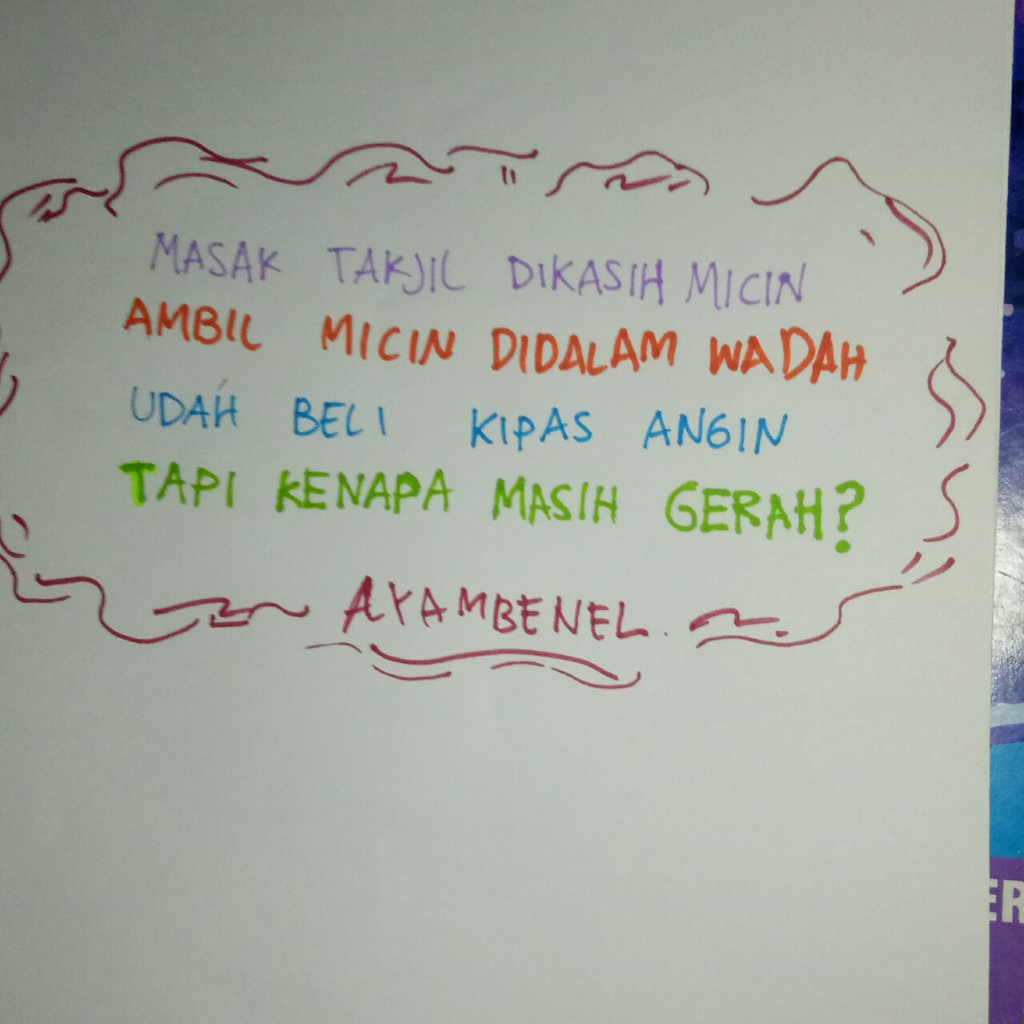 MASAK TAKJIL DIKASIH MICIN
AMBIL MICIN DIDALAM WADAH
UDAH BELI KIPAS ANGIN
TAPI KENAPA MASIH GERAH?
AYAMBENEL.
ER